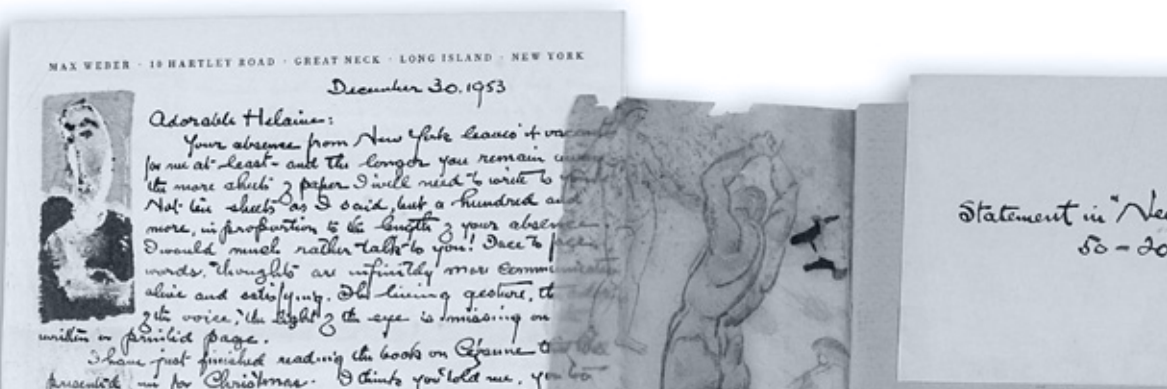 MAX WEBER · 10 HARTLEY ROAD · GREAT NECK · LONG ISLAND · NEW YORK
December 30, 1953
Adorable Helaine:
Your absence from New York leaves it
for me at least - and the longer you remain
the more sheets of paper I will need to write to
Not ten sheets as I said, but a hundred and
more, in proportion to the length of your absence.
I would much rather talk to you! Face to face
words, thoughts are infinitely more
alive and satisfying. The living gesture, the
of the voice, the light of the eye is missing on
written or printed page.
I have just finished reading the book on Cézanne
presented me for Christmas. I think you told me, you
Statement in "
50 - 20